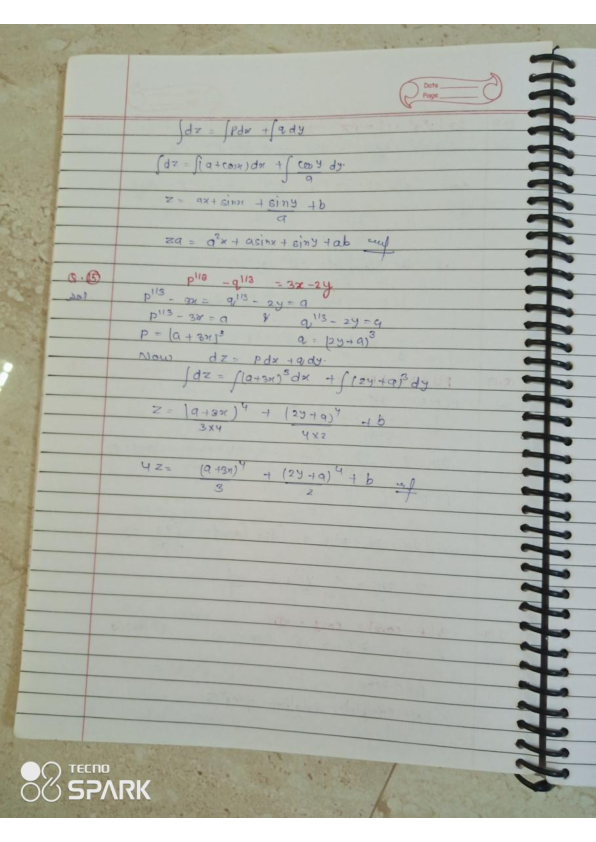 Date
Page
∫dz = ∫pdx + ∫q dy
∫dz = ∫(a+cosx)dx + ∫cosy/a dy.
z = ax + sinx + siny/a + b
za = a²x + asinx + siny + ab
Q.⑮ p^1/3 - q^1/3 = 3x - 2y
sol p^1/3 - 3x = q^1/3 - 2y = a
p^1/3 - 3x = a & q^1/3 - 2y = a
p = (a + 3x)³ q = (2y+a)³
Now dz = pdx + qdy.
∫dz = ∫(a+3x)³dx + ∫(2y+a)³dy
z = (a+3x)⁴/3×4 + (2y+a)⁴/4×2 + b
4z = (a+3x)⁴/3 + (2y+a)⁴/2 + b
TECNO
SPARK